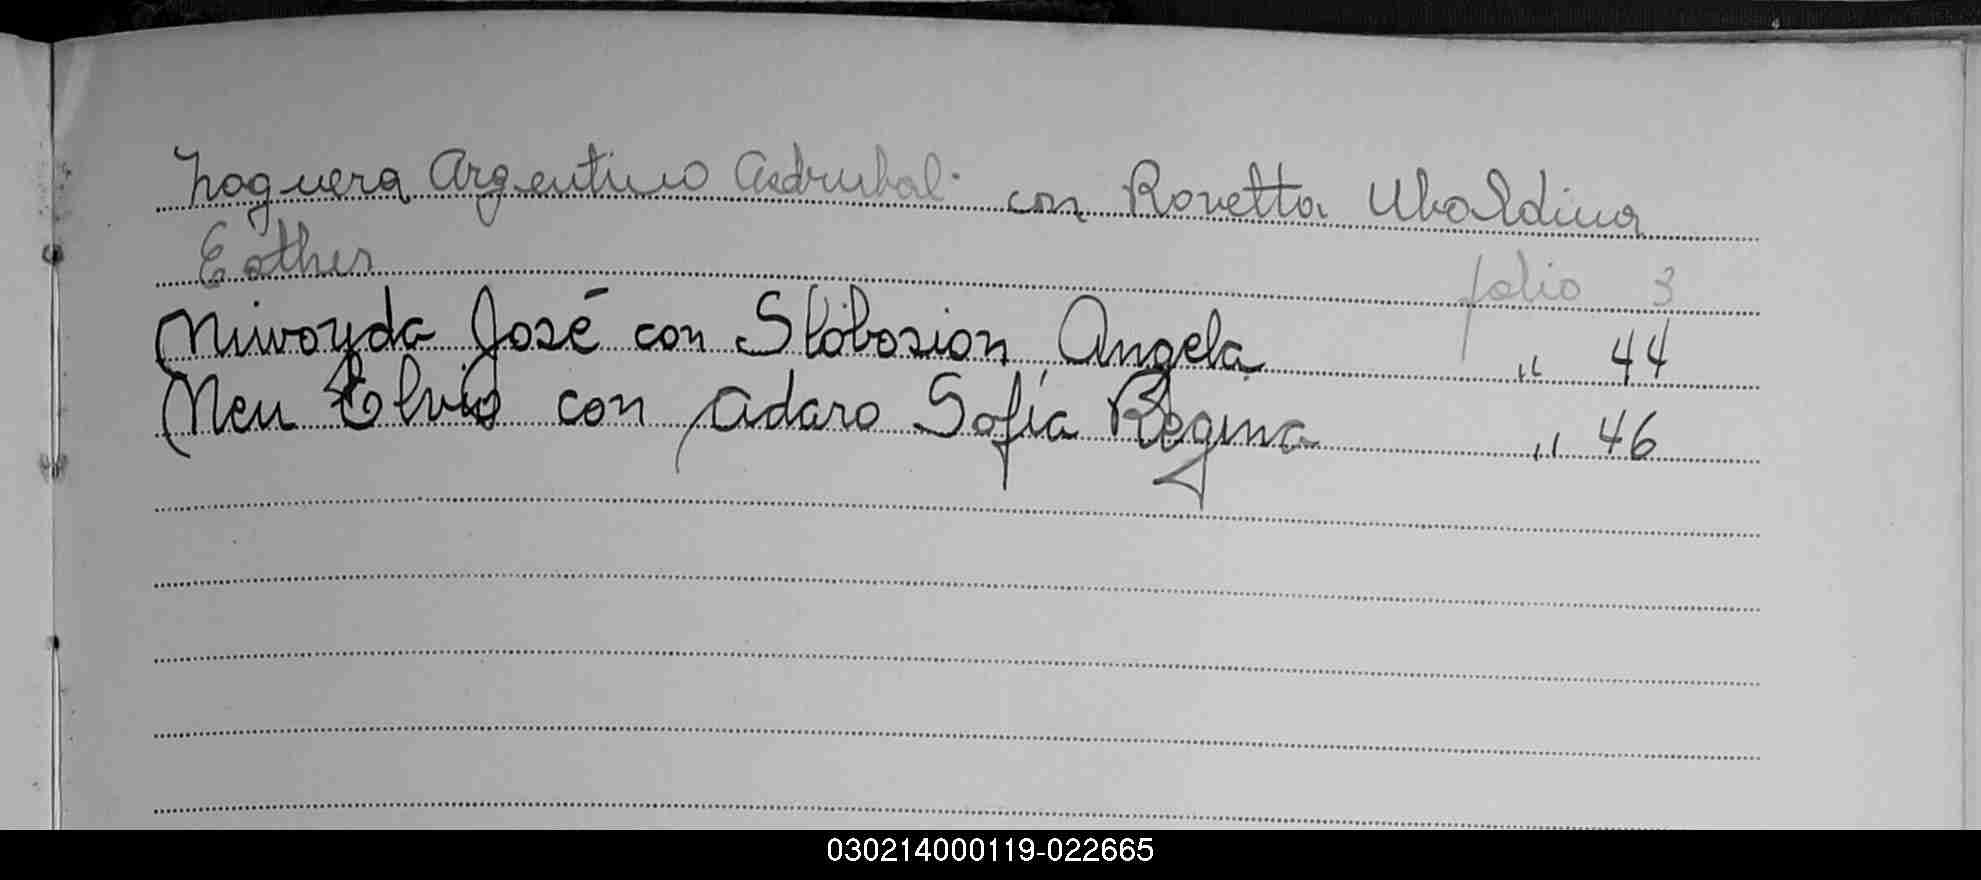 Noguera Argentino Asdrubal. con Rovetta Ubaldina
Esther folio 3
Niwoyda José con Slobosion Angela " 44
Neu Elvio con Adaro Sofía Regina " 46
030214000119-022665